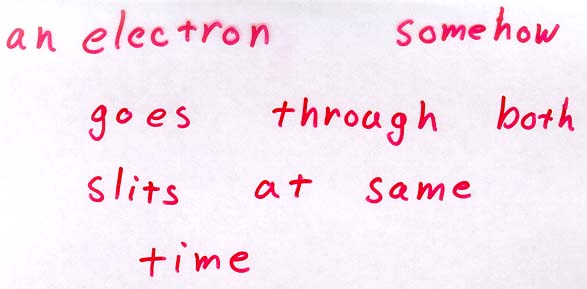 an electron somehow
goes through both
slits at same
time